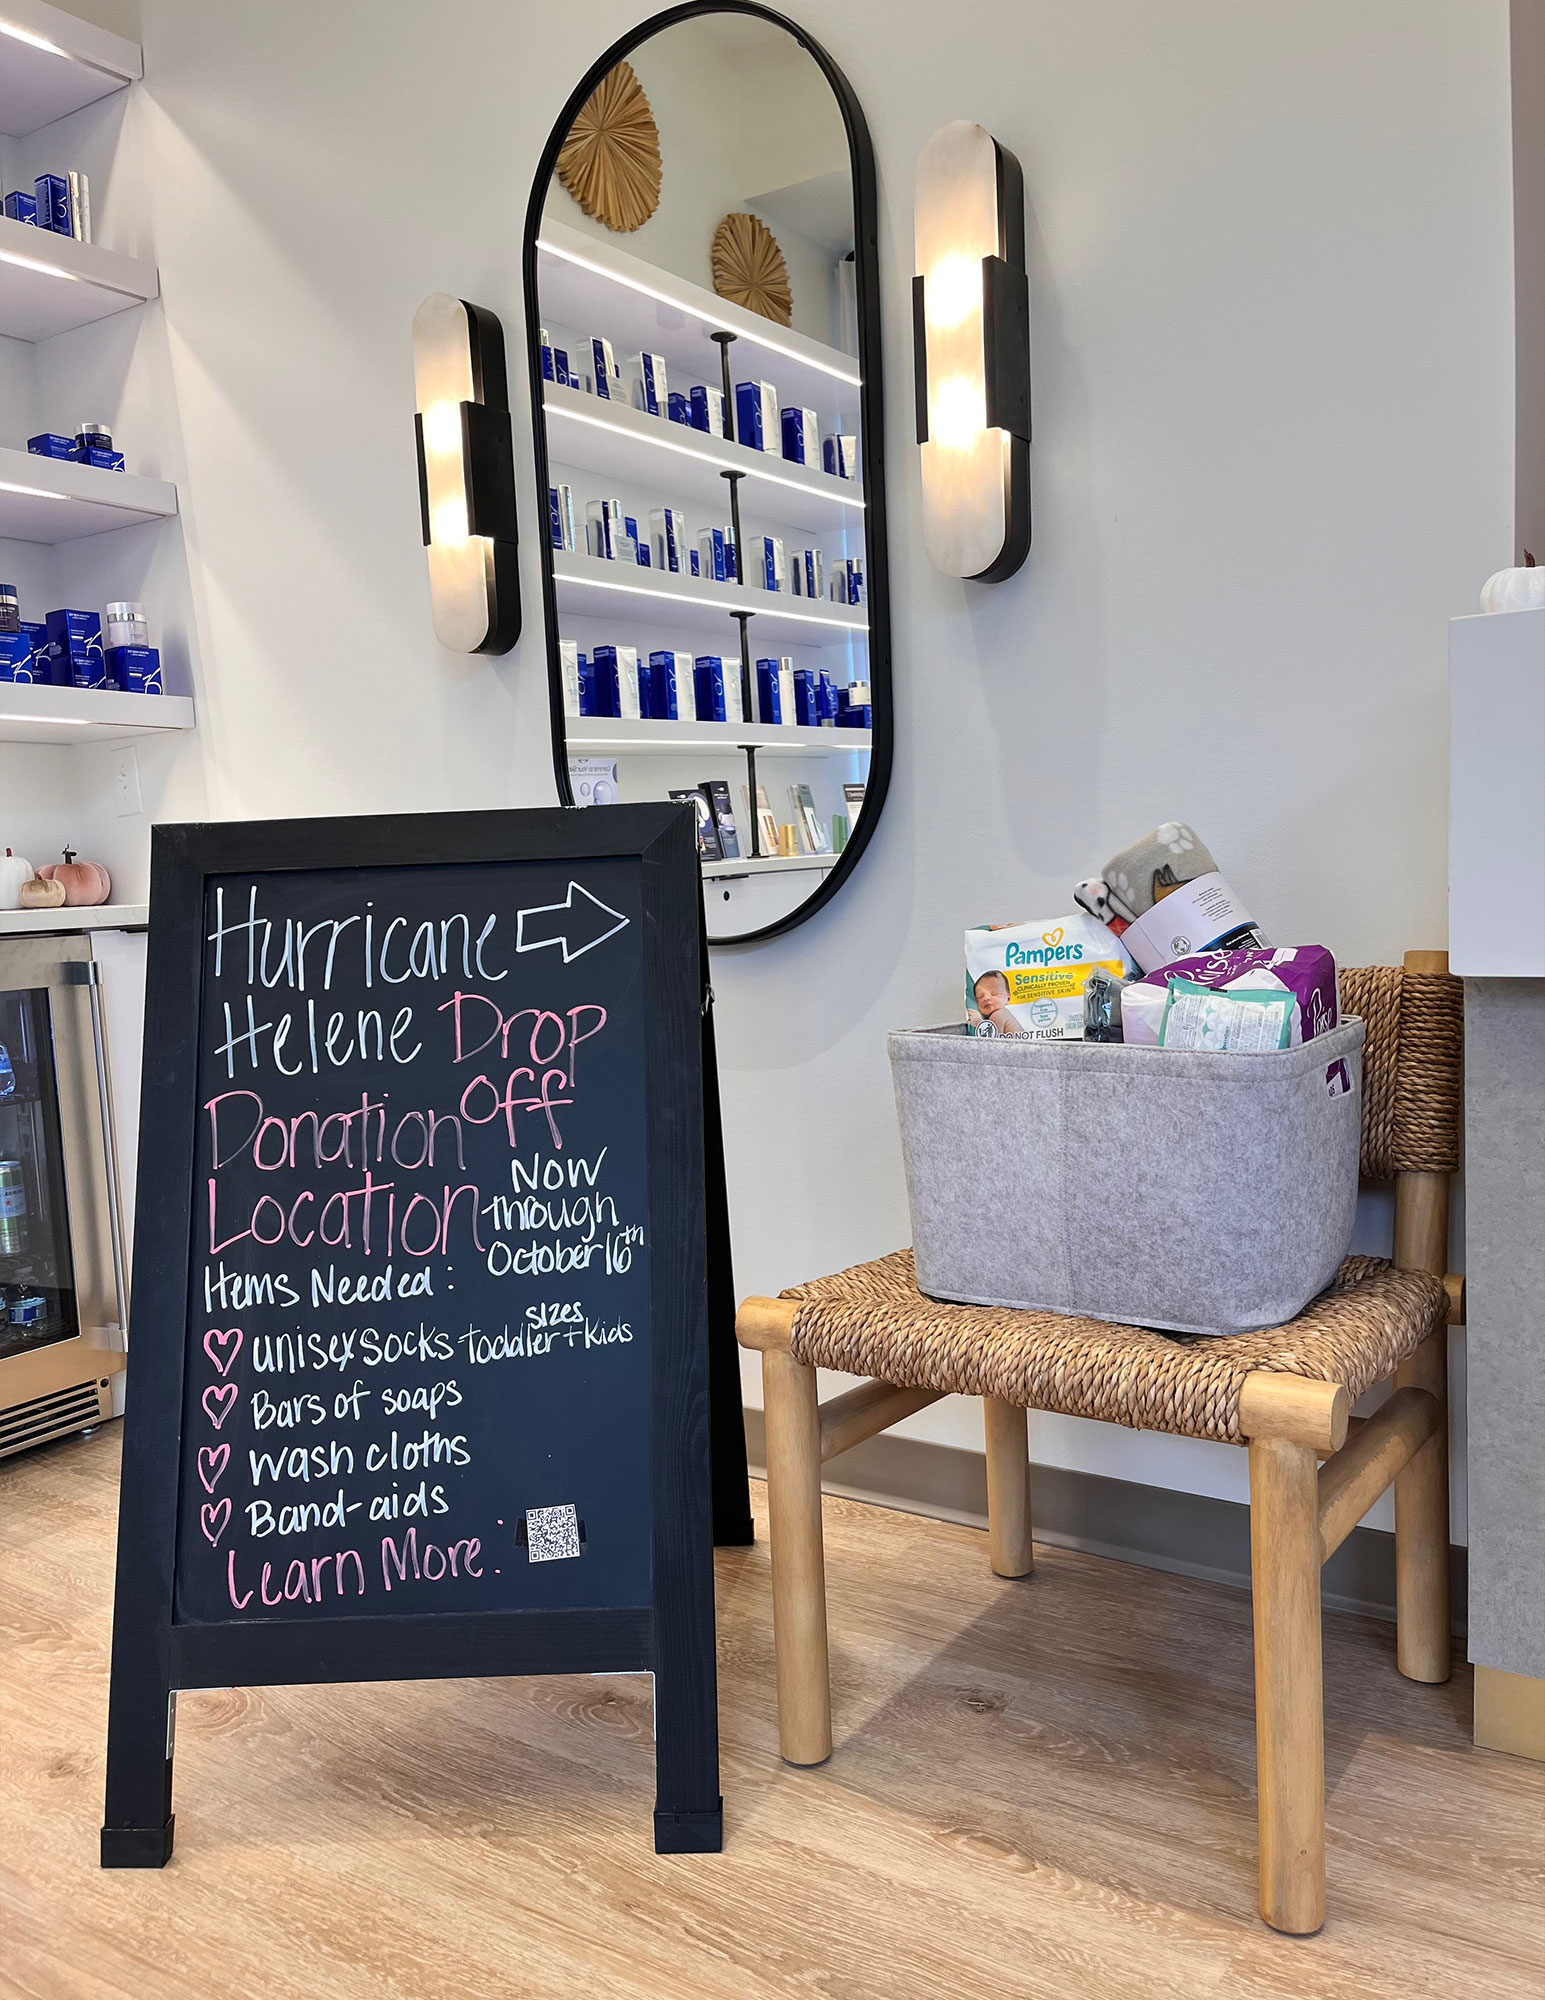 Hurricane
Helene Drop
Donation Off
Location
Now
through
October 16th
Items Needed:
unisex socks - toddler + kids
sizes
Bars of soaps
Wash cloths
Band-aids
Learn More:
Pampers
Sensitive
CLINICALLY PROVEN
FOR SENSITIVE SKIN
DO NOT FLUSH